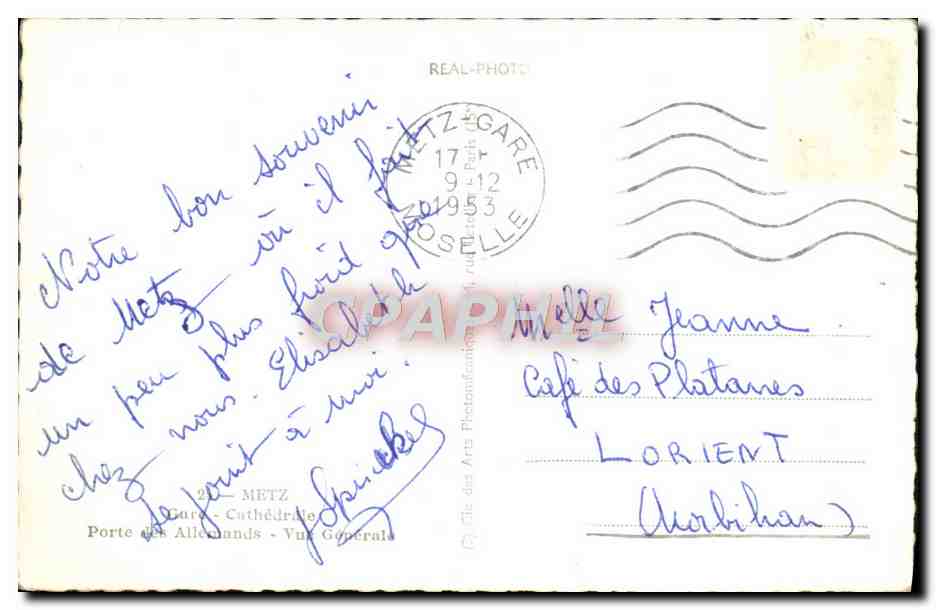 REAL-PHOTO
METZ-GARE
17 H
9-12
1953
MOSELLE
Notre bon souvenir
de Metz où il fait
un peu plus froid que
chez nous. Elisabeth
se joint à moi.
Melle Jeanne
Café des Platanes
LORIENT
(Morbihan)
METZ
Gare - Cathédrale
Porte des Allemands - Vue Générale
(C) Cie des Arts Photomécaniques
Paris
CPAPHIL